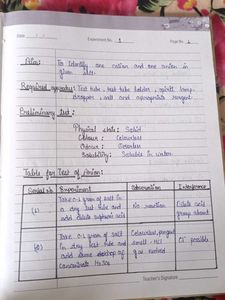 Date
Experiment No. 1
Page No. 1
Aim:- To identify one cation and one anion in
given salt.
Required apparatus: Test tube, test tube holder, spirit lamp,
dropper, salt and appropriate reagent
Preliminary test:
Physical state: Solid
Colour: Colourless
Odour: Odourless
Solubility: Soluble in water
Table for Test of Anion:
Serial no. Experiment Observation Inference
(1) Take 0.1 gram of salt
in a dry test tube and
add dilute sulphuric acid
No reaction
Dilute acid
group absent
(2) Take 0.1 gram of salt
in dry test tube and
add some drops of
concentrate H2SO4
Colourless, pungent
smell HCl
gas evolved
Cl⁻ possible
Teacher's Signature